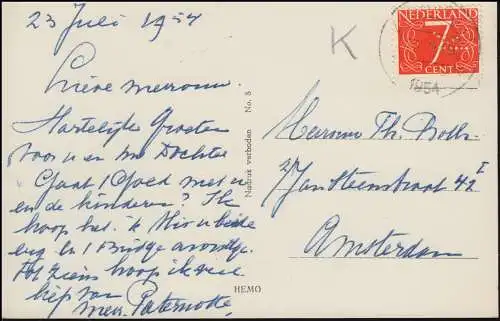 23 Juli 1954
Lieve mevrouw.
Hartelijke Groeten
voor u en uw Dochter
Gaat 't Goed met u
en de kinderen? Ik
hoop het. ik
erg
Tot ziens hoop ik veel
liefs van
Mevr. Paternotte,
Nadruk verboden No. 5
HEMO
K
NEDERLAND
7
CENT
1954
Mevrouw Th.
Jan Steenstraat 42 I
Amsterdam